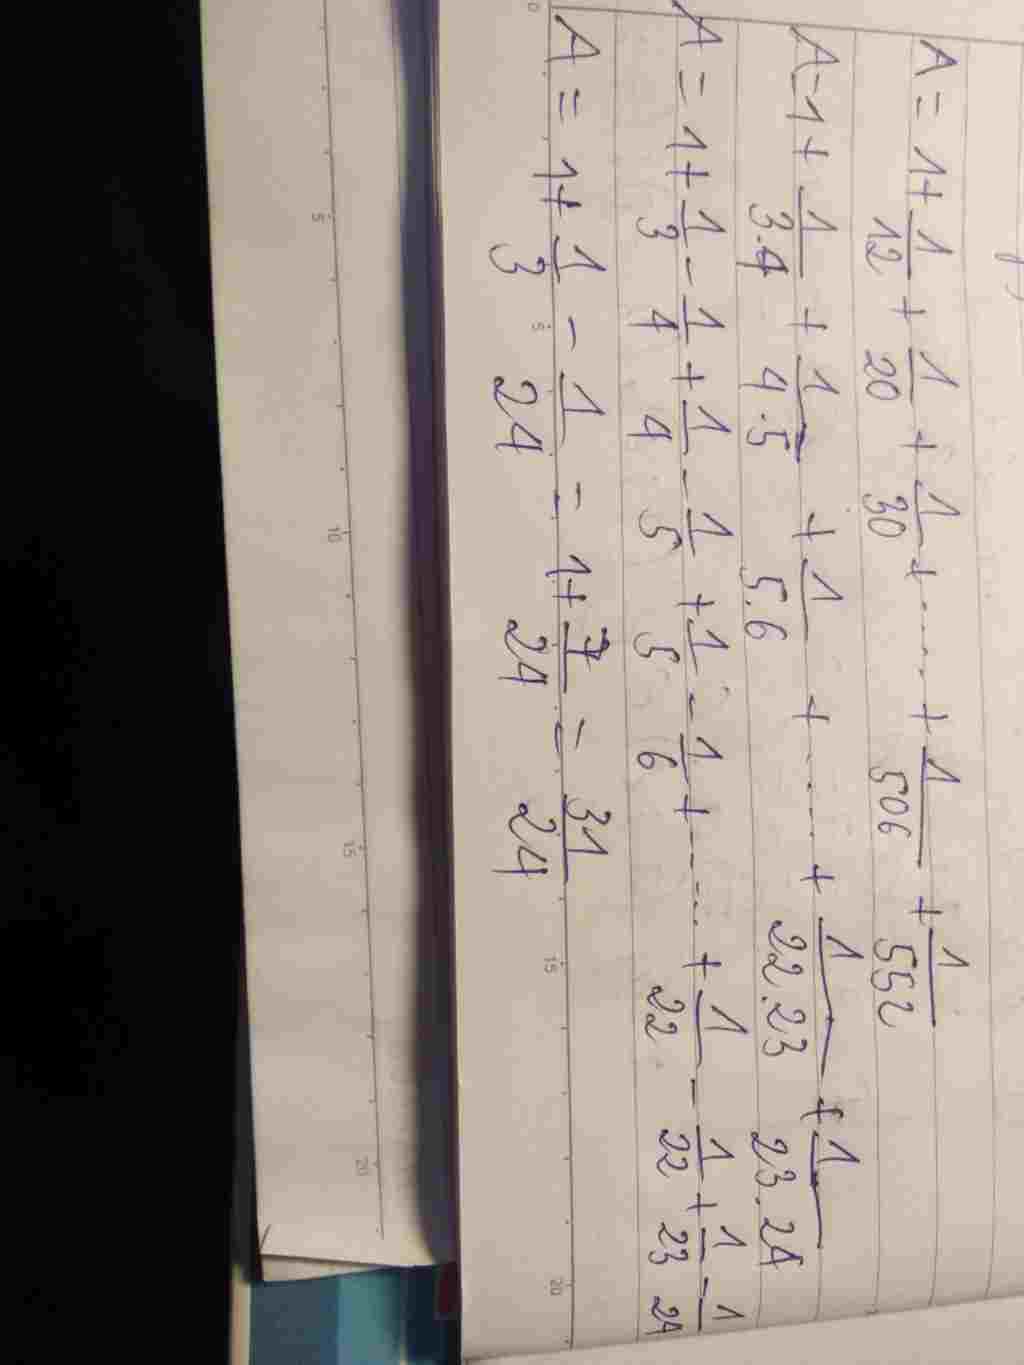 A = 1 + 1/12 + 1/20 + 1/30 + ...... + 1/506 + 1/552
A = 1 + 1/3.4 + 1/4.5 + 1/5.6 + ...... + 1/22.23 + 1/23.24
A = 1 + 1/3 - 1/4 + 1/4 - 1/5 + 1/5 - 1/6 + ...... + 1/22 - 1/22 + 1/23 - 1/24
A = 1 + 1/3 - 1/24 = 1 + 7/24 = 31/24
0 5 15 20
5 10 15 20